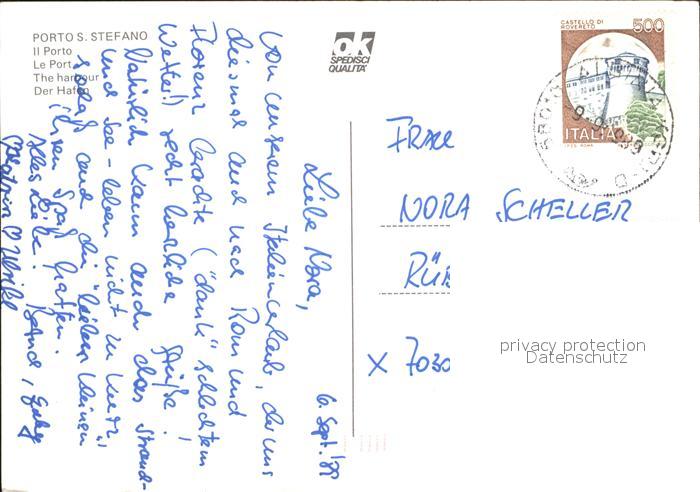 PORTO S. STEFANO
Il Porto
Le Port
The harbour
Der Hafen
ok
SPEDISCI
QUALITÀ
CASTELLO DI
ROVERETO
500
ITALIA
6. Sept.'88
Liebe Nora,
von unserem Italienurlaub, der uns
diesmal auch nach Rom und
Florenz brachte ("dank" schlechtem
Wetter!) recht herzliche Grüße!
Natürlich kam auch das Strand-
und See-leben nicht zu kurz,
sodaß auch die "lieben Kleinen"
ihren Spaß hatten.
Alles Liebe! Bernd,
Ulrike
FRAU
NORA SCHELLER
RÜ
X 7030
privacy protection
Datenschutz